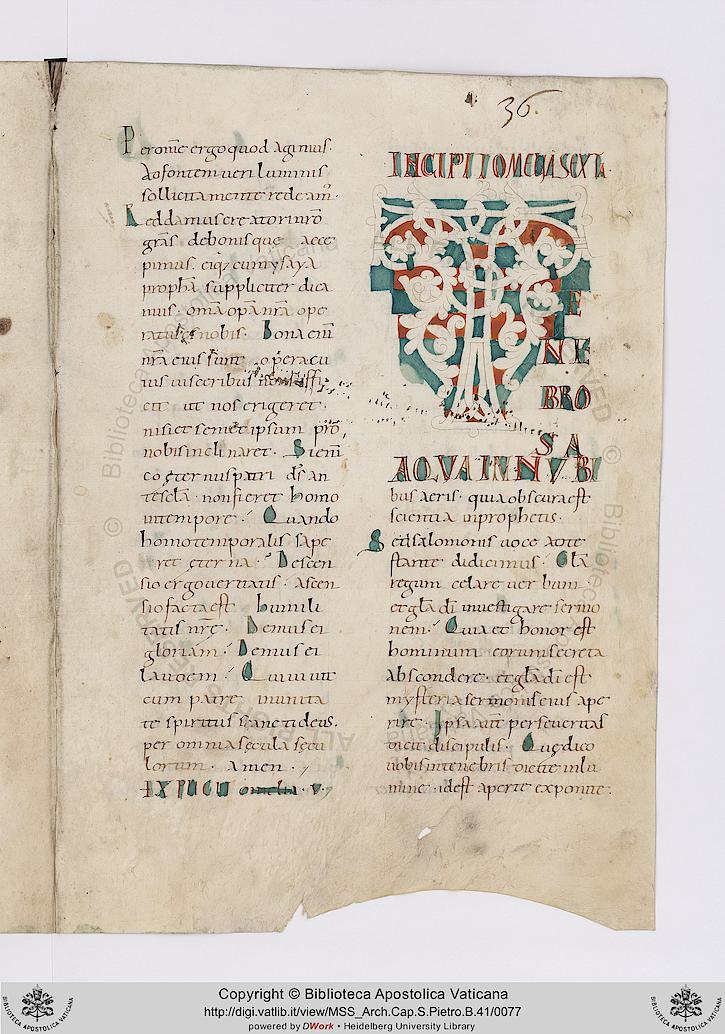 36.
Per om̅e ergo quod agimus.
Ad fontem veri luminis
sollicitamente redeam̅.
Reddamus creatori nr̅o
gr̅as de bonis que acce
pimus. eiq; cum ysaya
propha̅ suppliciter dica
mus. om̅a opa̅ nr̅a ope
ratus es nobis. Bona eni̅
nr̅a eius sunt opera cu
ius visceribus
cit ut nos erigeret.
nisi et semet ipsum pro̅
nobis inclinaret. Si eni̅
coęternus patri dī an
te sc̅la non fieret homo
in tempore. Quando
homo temporalis sape
ret ęterna. Descen
sio ergo veritatis. ascen
sio facta est humili
tatis nr̅e. Demus ei
gloriam. Demus ei
laudem. Qui vivit
cum patre in unita
te spiritus sancti deus.
per omnia secula secu
lorum. Amen.
EXPLICIT omelia. V.
INCIPIT OMELIA SEXTA.
TE
NE
BRO
SA
AQVA IN NVBI
bus aeris. quia obscura est
scientia in prophetis.
Sed salomonis voce adte
stante didicimus. Gl̅a
regum celare verbum.
et gl̅a di̅ investigare sermo
nem. Quia et honor est
hominum eorum secreta
abscondere. et gl̅a di̅ est
mysteria sermonis eius ape
rire. Ipsa aut̅ per se veritas
dicit discipulis. Quę dico
vobis in tenebris dicite in lu
mine. id est aperte exponite.
Copyright © Biblioteca Apostolica Vaticana
http://digi.vatlib.it/view/MSS_Arch.Cap.S.Pietro.B.41/0077
powered by DWork • Heidelberg University Library